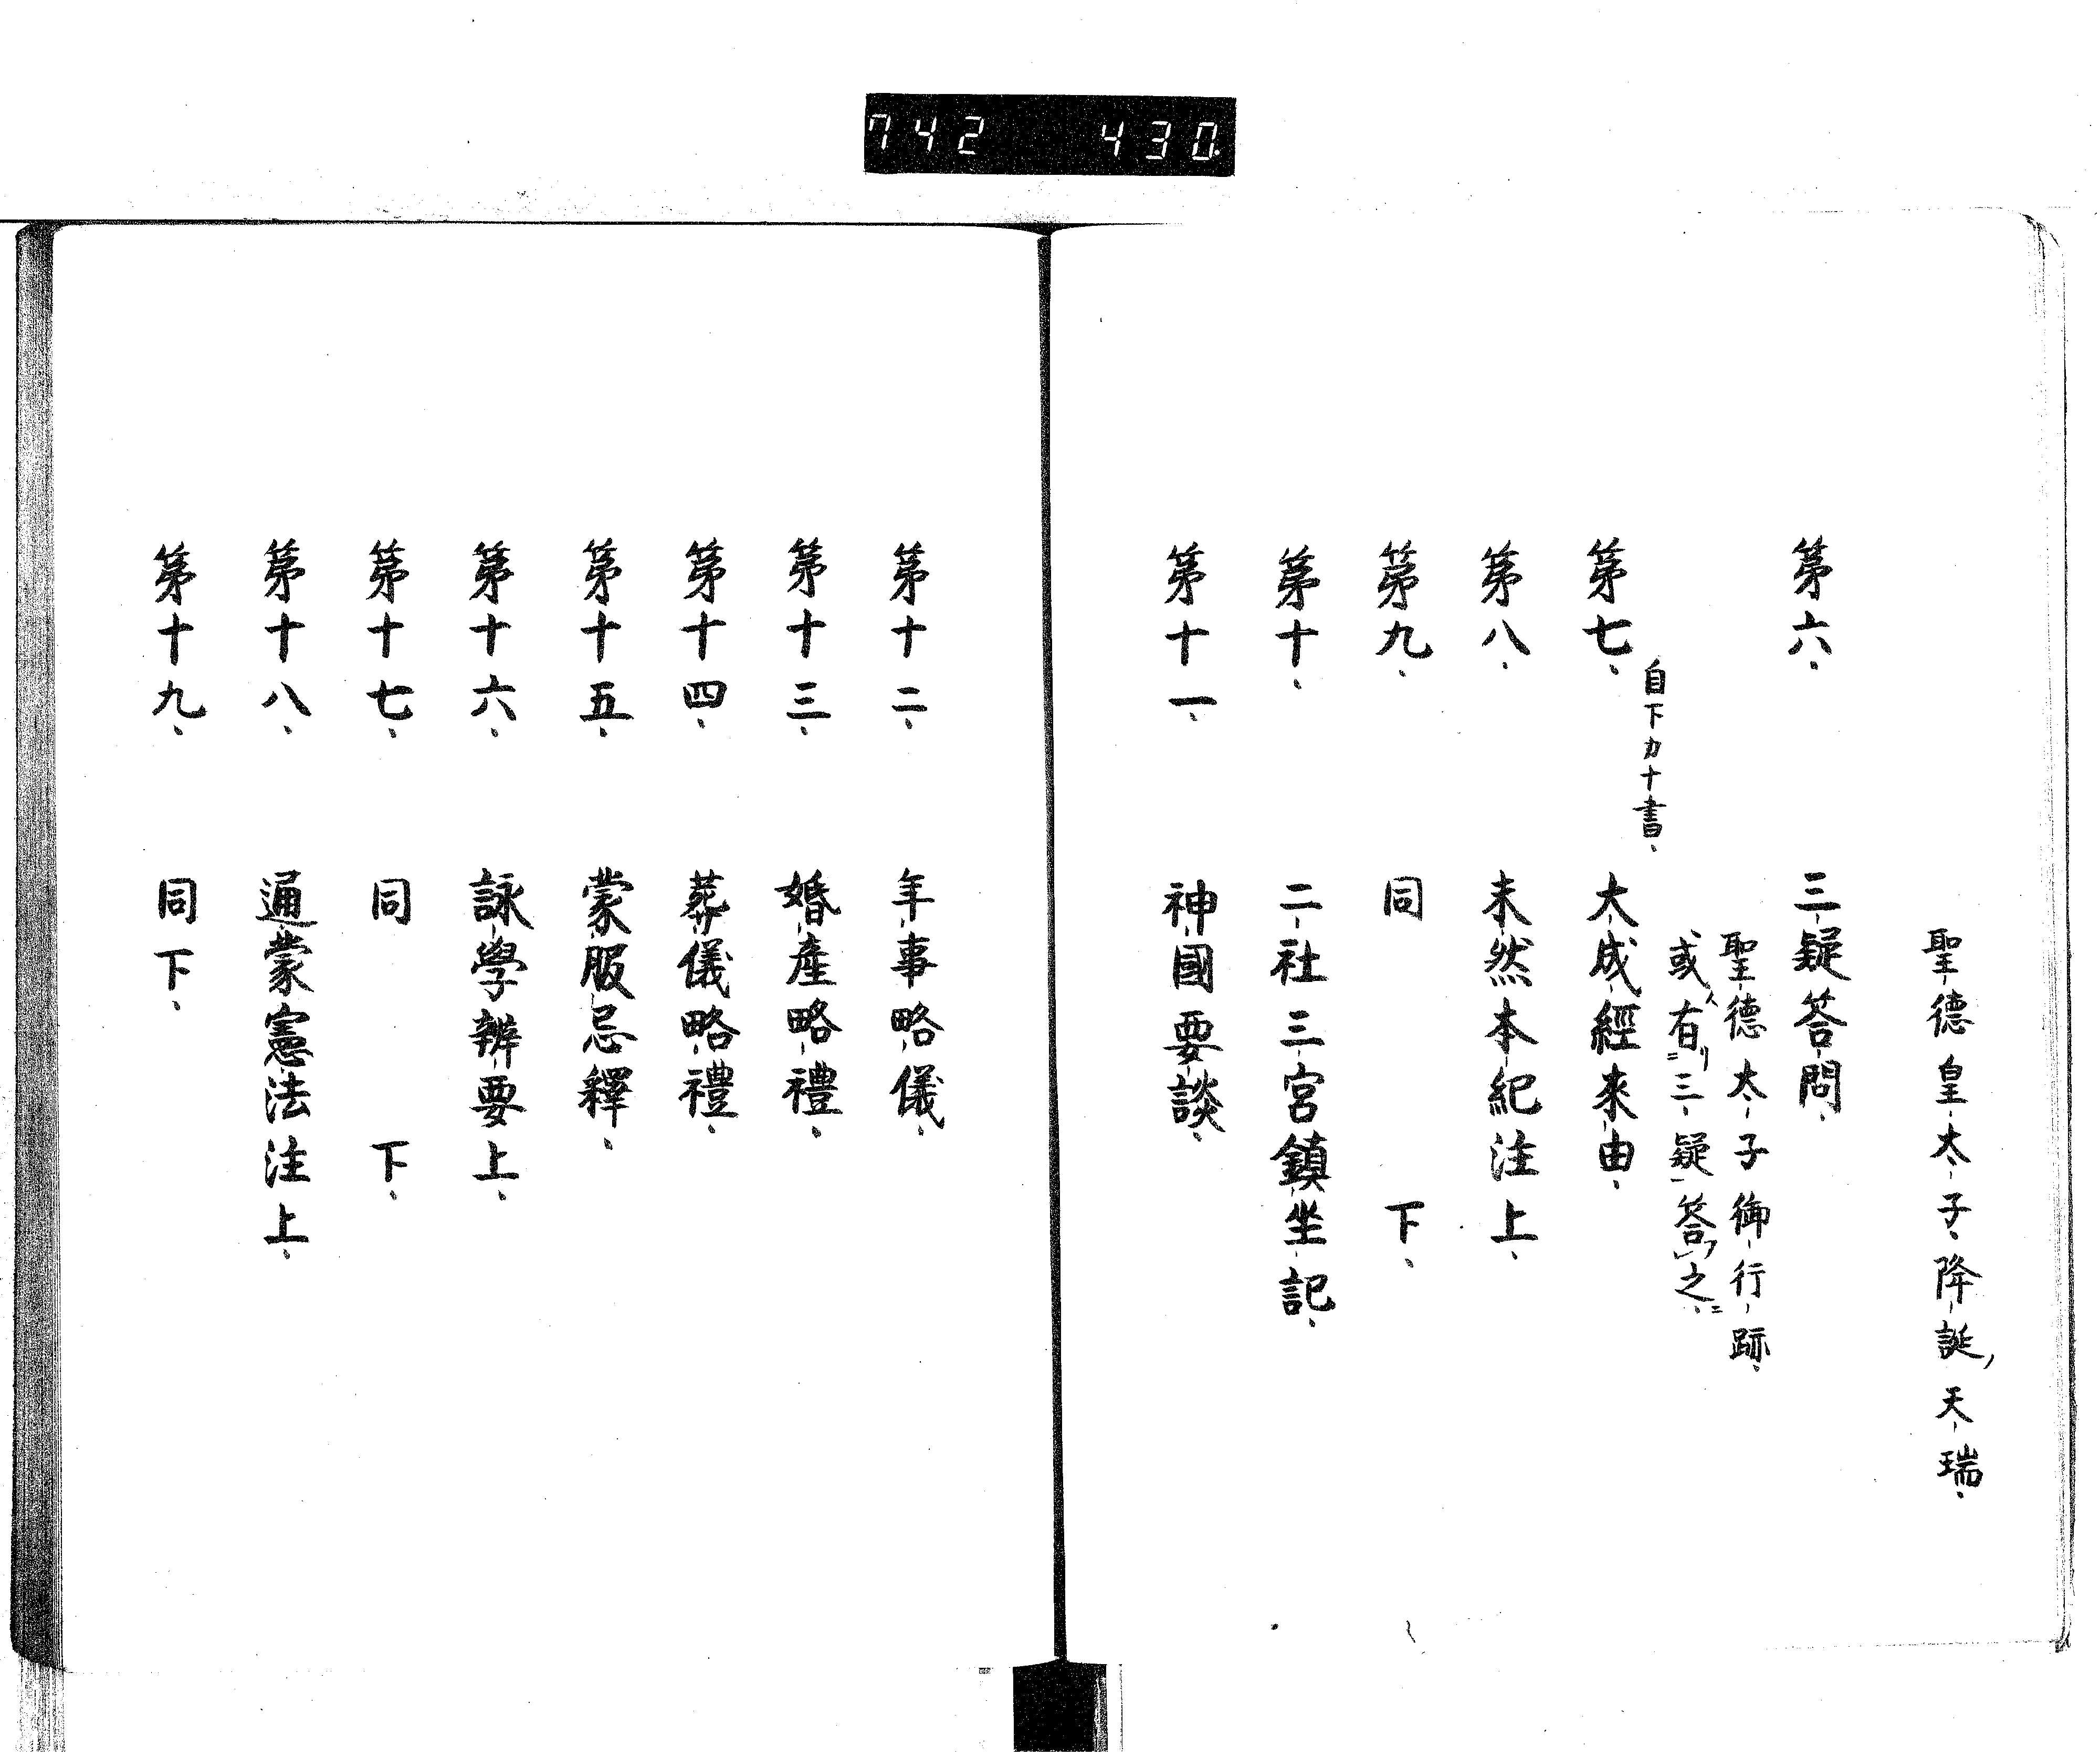 742 430
聖德皇太子降誕、天瑞、
第六、 三疑答問、
聖德太子御行跡、
或人有リ三疑答フ之、
自下力十書、
第七、 大成經來由、
第八、 未然本紀注上、
第九、 同 下、
第十、 二社三宮鎮坐記、
第十一、 神國要談、
第十二、 年事略儀、
第十三、 婚產略禮、
第十四、 葬儀略禮、
第十五、 蒙服忌釋、
第十六、 詠學辨要上、
第十七、 同 下、
第十八、 通蒙憲法注上、
第十九、 同下、